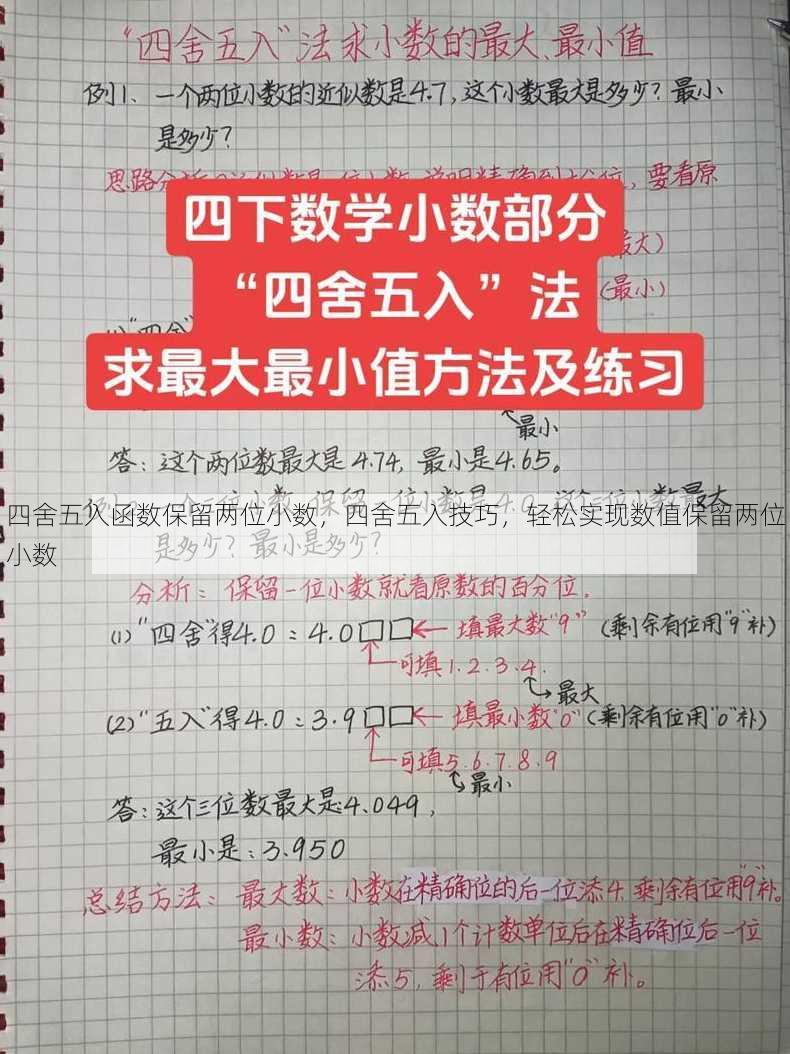 “四舍五入”法求小数的最大、最小值
例1、一个两位小数的近似数是4.7，这个小数最大是多少？最小
是多少？
思路分
要看原
四下数学小数部分
最大）
“四舍五入”法
（最小）
求最大最小值方法及练习
最小
答：这个两位数最大是4.74，最小是4.65。
四舍五入函数保留两位小数，四舍五入技巧，轻松实现数值保留两位
小数
是多少？最小是多少？
分析：保留一位小数就看原数的百分位。
(1)“四舍”得4.0：4.0□□←填最大数“9”（剩余有位用“9”补）
可填1.2.3.4.
最大
(2)“五入”得4.0：3.9□□←填最小数“0”（剩余有位用“0”补）
可填5.6.7.8.9
最小
答：这个三位数最大是:4.049，
最小是：3.950
总结方法：最大数：小数在精确位的后一位添4，剩余有位用“9”补。
最小数：小数减1个计数单位后在精确位后一位
添5，剩于有位用“0”补。